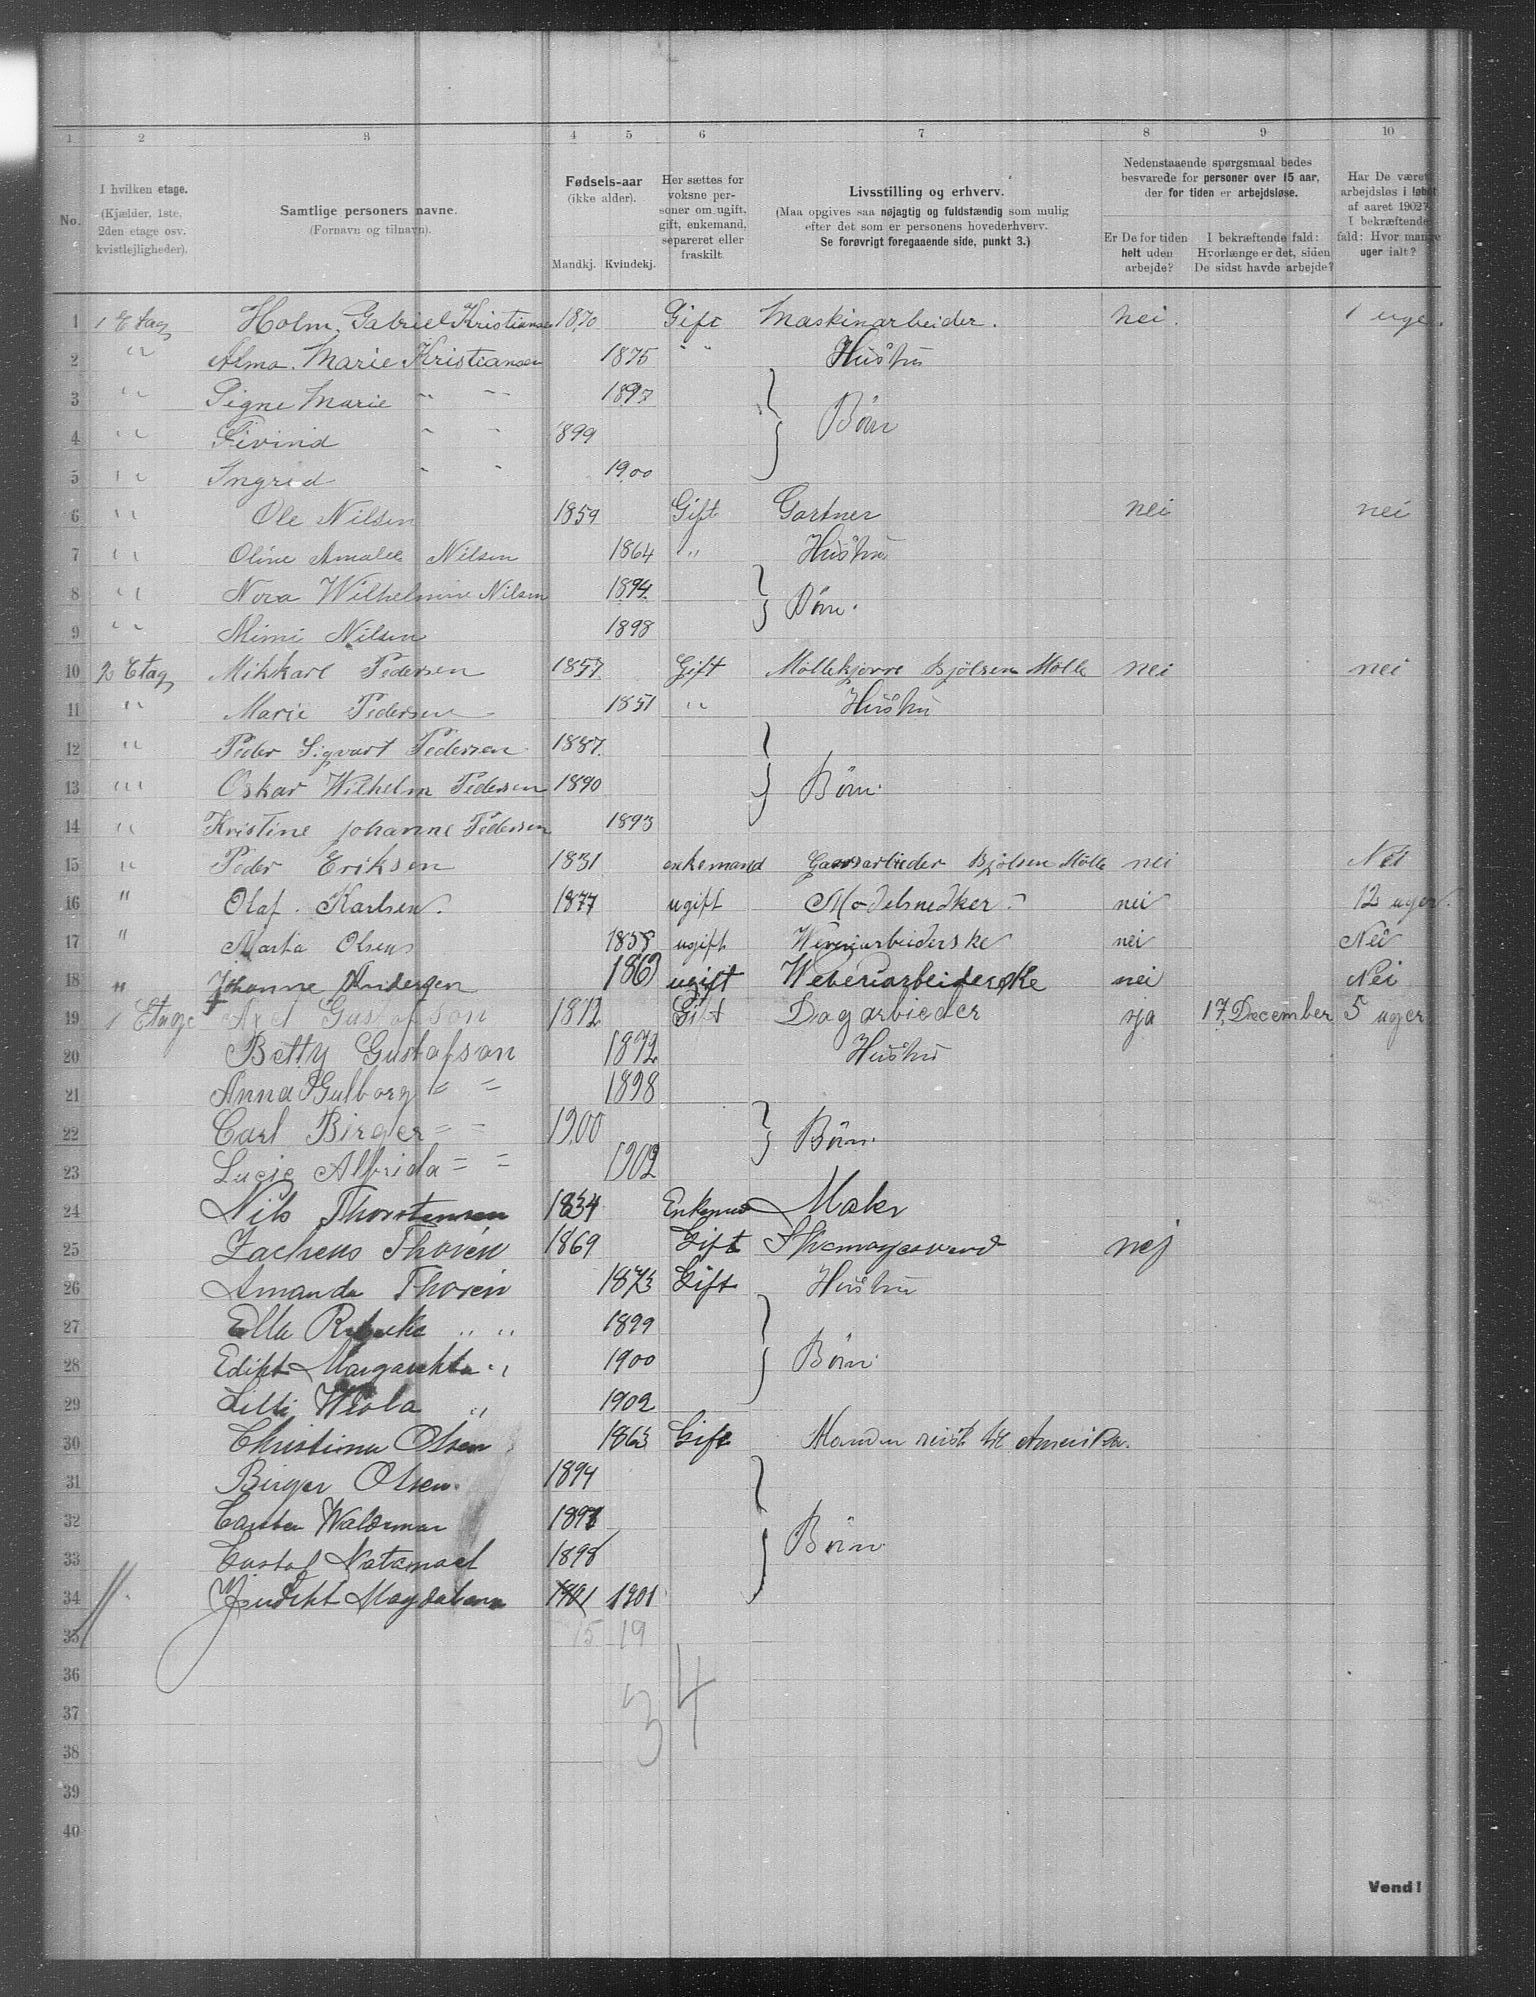 1 2 3 4 5 6 7 8 9 10
No.
I hvilken etage.
(Kjælder, 1ste,
2den etage osv.
kvistlejligheder).
Samtlige personers navne.
(Fornavn og tilnavn).
Fødsels-aar
(ikke alder).
Mandkj. Kvindekj.
Her sættes for
voksne per-
soner om ugift,
gift, enkemand,
separeret eller
fraskilt.
Livsstilling og erhverv.
(Maa opgives saa nøjagtig og fuldstændig som mulig
efter det som er personens hovederhverv.
Se forøvrigt foregaaende side, punkt 3.)
Nedenstaaende spørgsmaal bedes
besvarede for personer over 15 aar,
der for tiden er arbejdsløse.
Er De for tiden
helt uden
arbejde?
I bekræftende fald:
Hvorlænge er det, siden
De sidst havde arbejde?
Har De været
arbejdsløs i løbet
af aaret 1902?
I bekræftende
fald: Hvor mange
uger ialt?
1 1 Etag Holm, Gabriel Kristiansen 1870 Gift Maskinarbeider. nei. 1 uge.
2 " Alma. Marie Kristiansen 1875 " " Hustru
3 " Signe Marie " " 1897 Børn
4 " Eivind " " 1899
5 " Ingrid " " 1900
6 " Ole Nilsen 1859 Gift Gartner nei nei
7 " Oline Amalie Nilsen 1864 " Hustru
8 " Nora Wilhelmine Nilsen 1894. Børn.
9 " Mimi Nilsen 1898
10 2 Etag Mikkael Pedersen 1857 Gift Møllekjører Bjølsen Mølle nei nei
11 " Marie Pedersen 1851 " Hustru
12 " Peder Sigvart Pedersen 1887.
13 " Oskar Wilhelm Pedersen 1890 Børn.
14 " Kristine Johanne Pedersen 1893
15 " Peder Eriksen 1831 enkemand Gaardsarbeider Bjølsen Mølle nei Nei
16 " Olaf. Karlsen. 1877 ugift Modelsnedker. nei 12 uger.
17 " Marta Olsen 1858 ugift Veveriarbeiderske nei Nei
18 " Johanne Andersen 1863 ugift Weveriarbeiderske nei Nei
19 1 Etage Axel Gustafson 1872 Gift Dagarbieder ja 17 December 5 uger
20 Betty Gustafson 1872 Hustru
21 Anna Gulborg " " 1898
22 Carl Birger " " 1900 Børn.
23 Lucie Alfrida " " 1902
24 Nils Thorstensen 1834 Enkemand Maler
25 Zacheus Thorén 1869 Gift Skomagersvend nej
26 Amanda Thorén 1873 Gift Hustru
27 Ella " " 1899
28 Edikt Margarehta " 1900 Børn.
29 Lilli Wiola " 1902
30 Christina Olsen 1863 Gift Manden reist til Amerika.
31 Birger Olsen. 1894
32 Waldemar 1897 Børn
33 Gustaf Natanael 1898
34 Judikt Magdalena 1901 1901
35 15 19
36
34
37
38
39
40
Vend!